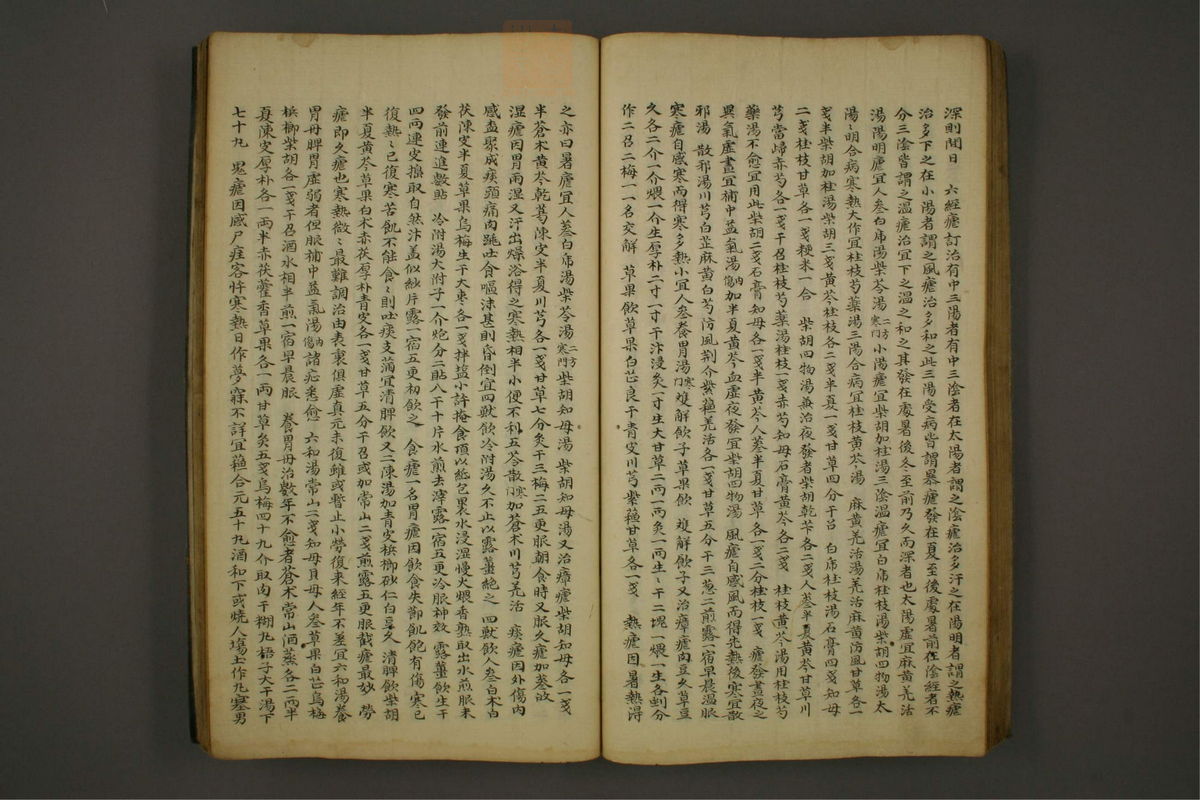 深則間日 六經瘧訂治有中三陽者有中三陰者在太陽者謂之陰瘧治多汗之在陽明者謂之熱瘧
治多下之在小陽者謂之風瘧治多和之此三陽受病皆謂暴瘧發在夏至後處暑前在陰經者不
分三陰皆謂之溫瘧治宜下之溫之和之其發在處暑後冬至前乃久而深者也太陽虛宜麻黃羌活
湯陽明瘧宜人參白虎湯柴苓湯二方寒門小陽瘧宜柴胡加桂湯三陰溫瘧宜白虎桂枝湯柴胡四物湯太
陽ミ明合病寒熱大作宜桂枝芍藥湯三陽合病宜桂枝黃芩湯 麻黃羌活湯羌活麻黃防風甘草各一
戔半柴胡加桂湯柴胡三戔黃芩桂枝各二戔半夏一戔甘草四分干召 白虎桂枝湯石膏四戔知母
二戔桂枝甘草各一戔粳米一合 柴胡四物湯兼治夜發者柴胡乾芐各二戔人參半夏黃芩甘草川
芎當歸赤芍各一戔干召桂枝芍藥湯桂枝一戔赤芍知母石膏黃芩各二戔 桂枝黃芩湯用桂枝芍
藥湯不愈宜用此柴胡二戔石膏知母各一戔半黃芩人參半夏甘草各一戔二分桂枝一戔 瘧發晝夜之
異氣虛晝宜補中益氣湯內傷加半夏黃芩血虛夜發宜柴胡四物湯 風瘧自感風而得先熱後寒宜散
邪湯 散邪湯川芎白芷麻黃白芍防風荊介紫蘓羌活各一戔甘草五分干三葱二煎露一宿早晨溫服
寒瘧自感寒而得寒多熱小宜人參養胃湯寒門䨇解飲子草果飲 䨇解飲子又治瘴瘧肉豆久草豆
久各二介一介煨一介生厚朴二寸一寸干汁浸炙一寸生大甘草二兩一兩炙一兩生ミ干二塊一煨一生各剉分
作二召二梅一一名交解 草果飲草果白芷良干青皮川芎紫蘓甘草各一戔 熱瘧因暑熱淂
之亦曰暑瘧宜人參白虎湯柴苓湯二方寒門柴胡知母湯 柴胡知母湯又治瘴瘧柴胡知母各一戔
半蒼朮黃芩乾葛陳皮半夏川芎各一戔甘草七分炙干三梅二五更服朝食時又服久瘧加參芪
湿瘧因冒雨湿又汗出燥浴得之寒熱相半小便不利五苓散寒門加蒼朮川芎羌活 痰瘧因外傷內
感盍聚成痰頭痛肉跳吐食嘔沫甚則昏倒宜四獸飲冷附湯久不止以露薑絶之 四獸飲人參白朮白
茯陳皮半夏草果烏梅生干大棗各一戔拌塩小許掩食頃以紙包裹水浸湿慢火煨香熟取出水煎服未
發前連進數貼 冷附湯大附子一介炮分二貼入干十片水煎去滓露一宿五更冷服神效 露薑飲生干
四兩連皮搗取自然汁盖似紗片露一宿五更初飲之 食瘧一名胃瘧因飲食失節飢飽有傷寒已
復熱ミ已復寒苦飢不能食ミ則吐痰支滿宜清脾飲又二陳湯加青皮檳榔砂仁白豆久 清脾飲柴胡
半夏黃芩草果白朮赤茯厚朴青皮各一戔甘草五分干召或加常山二戔煎露五更服截瘧最妙 勞
瘧即久瘧也寒熱微ミ最難調治由表裏俱虛真元未復雖或暫止小勞復来經年不差宜六和湯養
胃毋脾胃虛弱者但服補中益氣湯內傷諸症悉愈 六和湯常山二戔知母貝母人參草果白芷烏梅
檳榔柴胡各一戔干召酒水相半煎一宿早晨服 養胃毋治數年不愈者蒼朮常山酒蒸各二兩半
夏陳皮厚朴各一兩半赤茯藿香草果各一兩甘草炙五戔烏梅四十九介取肉干糊丸梧子大干湯下
七十九 鬼瘧因感尸疰客忤寒熱日作夢寐不詳宜蘓合元五十九酒和下或燒人塲土作丸塞男